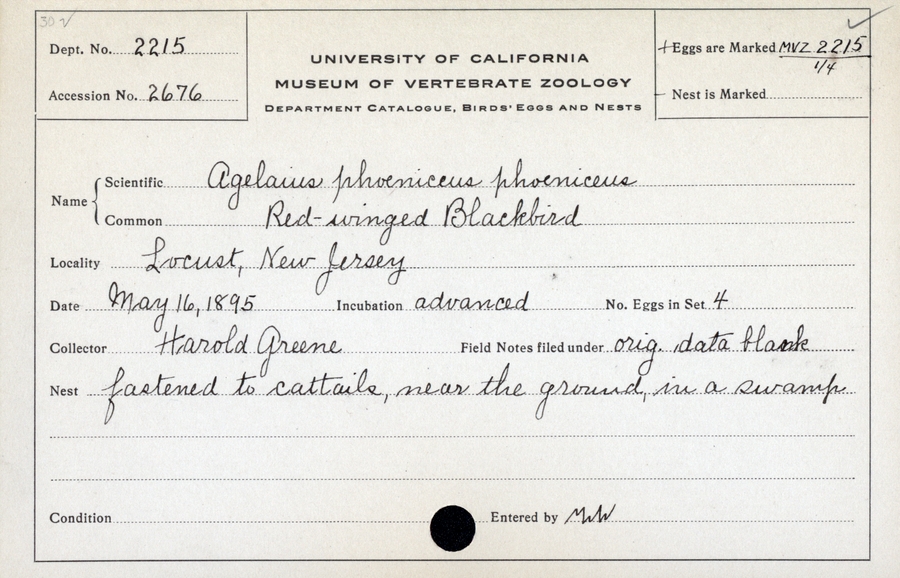 30 √
Dept. No. 2215
Accession No. 2676
UNIVERSITY OF CALIFORNIA
MUSEUM OF VERTEBRATE ZOOLOGY
DEPARTMENT CATALOGUE, BIRDS' EGGS AND NESTS
+Eggs are Marked MVZ 2215
1/4
– Nest is Marked
Name
Scientific Agelaius phoeniceus phoeniceus
Common Red-winged Blackbird
Locality Locust, New Jersey
Date May 16, 1895 Incubation advanced No. Eggs in Set 4
Collector Harold Greene Field Notes filed under orig. data blank
Nest fastened to cattails, near the ground, in a swamp
Condition Entered by MW